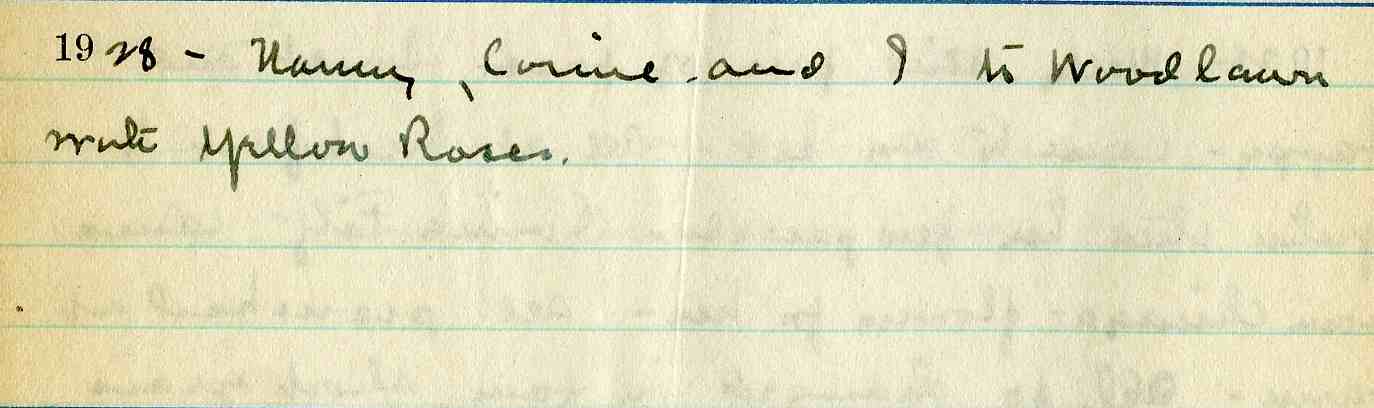 1928 - Nanny, Corine and I to Woodlawn
with Yellow Roses.